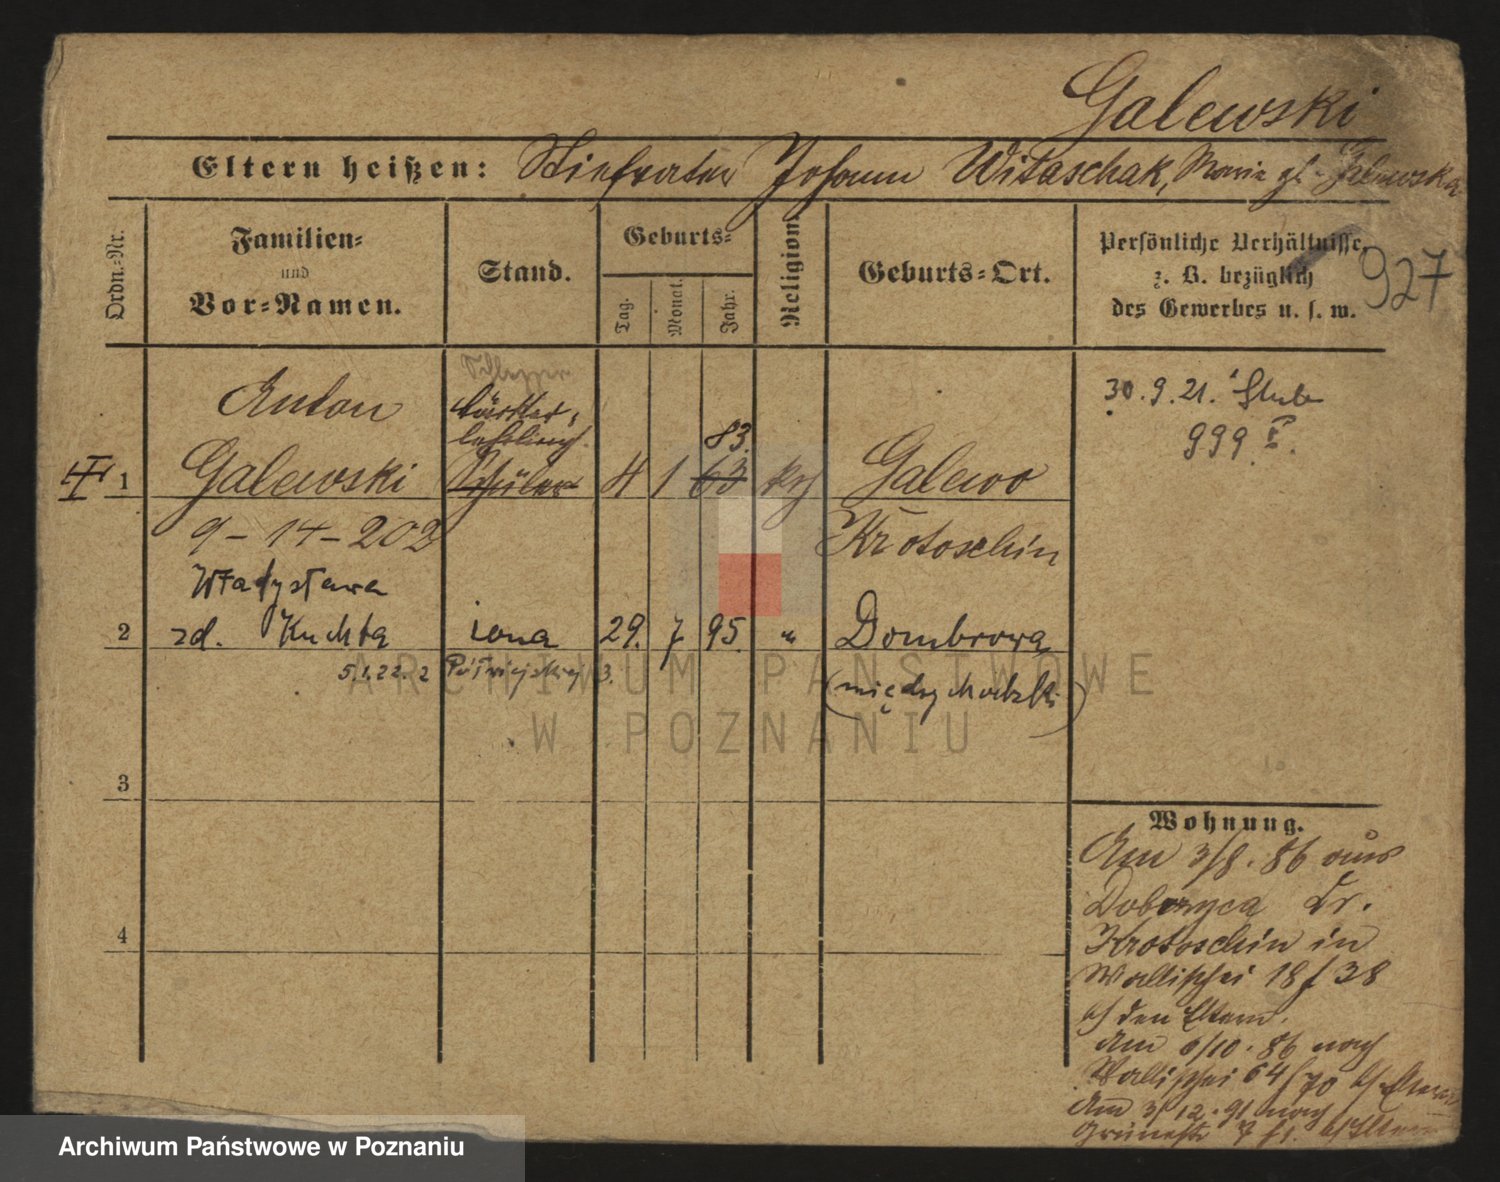 Galewski
Eltern heißen: Stiefvater Johann Witaschak, Maria gb. Galewska
Ordn.-Nr.
Familien-
und
Vor-Namen.
Stand.
Geburts-
Tag.
Monat.
Jahr.
Religion
Geburts-Ort.
Persönliche Verhältnisse,
z. B. bezüglich
des Gewerbes u. s. w.
927
Anton
lehrling
83.
1 Galewski Schüler 4 1 63 kth Galewo
9-14-202 Krotoschin
Władysława
2 zd. Kuchta żona 29. 7 95. " Dombrowa
5.1.22. 2 Półwiejska 3.
(między Modrzki)
30.9.21.
999
3
4
Wohnung.
Am 3/8. 86 aus
Dobrzyca Kr.
Krotoschin in
Wallischei 18 f 38
b/ den Eltern.
Am 6/10. 86 nach
Wallischei 64 f 70 b/ Eltern
Am 3/12. 91 nach
Grünestr. 7 f 1. b/ Eltern
ARCHIWUM PAŃSTWOWE
W POZNANIU
Archiwum Państwowe w Poznaniu